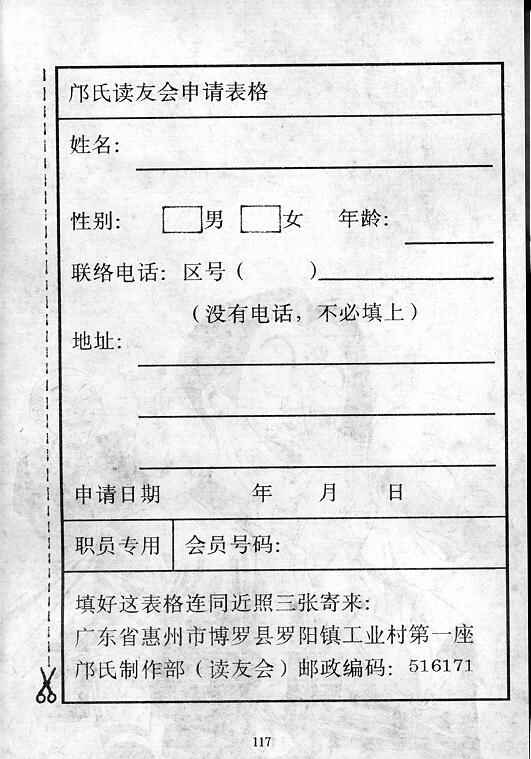 邝氏读友会申请表格
姓名:
性别: 男 女 年龄:
联络电话: 区号( )
(没有电话，不必填上)
地址:
申请日期 年 月 日
职员专用 会员号码:
填好这表格连同近照三张寄来:
广东省惠州市博罗县罗阳镇工业村第一座
邝氏制作部(读友会)邮政编码: 516171
117